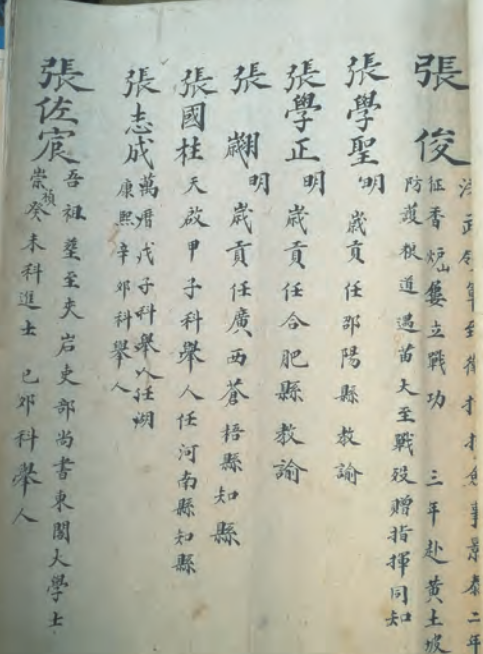 張俊
事景泰二年
征香炉山屢立戰功 三年赴黄土坡
防護粮道遇苗大至戰殁贈指揮同知
張學聖 明 歲貢任邵陽縣教諭
張學正 明 歲貢任合肥縣教諭
張翽 明 歲貢任廣西蒼梧縣知縣
張國柱 天啟甲子科舉人任河南縣知縣
張志成 萬曆戊子科舉人任湖
康熙辛卯科舉人
張佐宸 吾祖塋至夾岩吏部尚書東閣大學士
崇禎癸未科進士 己卯科舉人